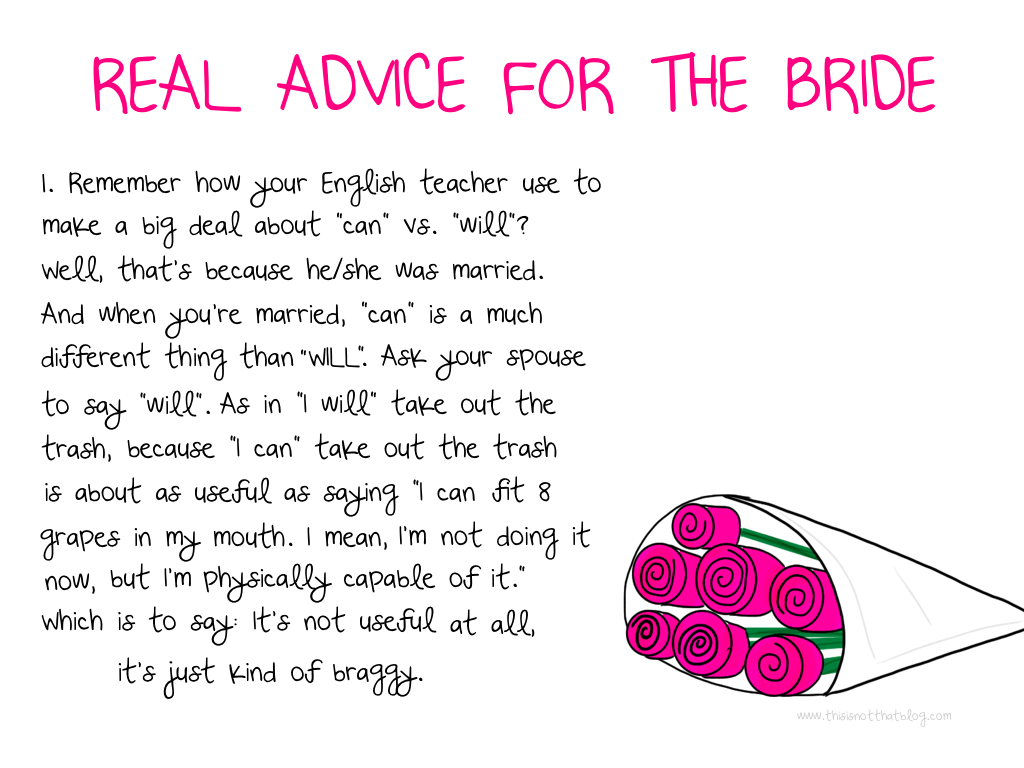 REAL ADVICE FOR THE BRIDE
1. Remember how your English teacher use to
make a big deal about "can" vs. "will"?
Well, that's because he/she was married.
And when you're married, "can" is a much
different thing than "WILL". Ask your spouse
to say "will". As in "I will" take out the
trash, because "I can" take out the trash
is about as useful as saying "I can fit 8
grapes in my mouth. I mean, I'm not doing it
now, but I'm physically capable of it."
Which is to say: It's not useful at all,
it's just kind of braggy.
www.thisisnotthatblog.com